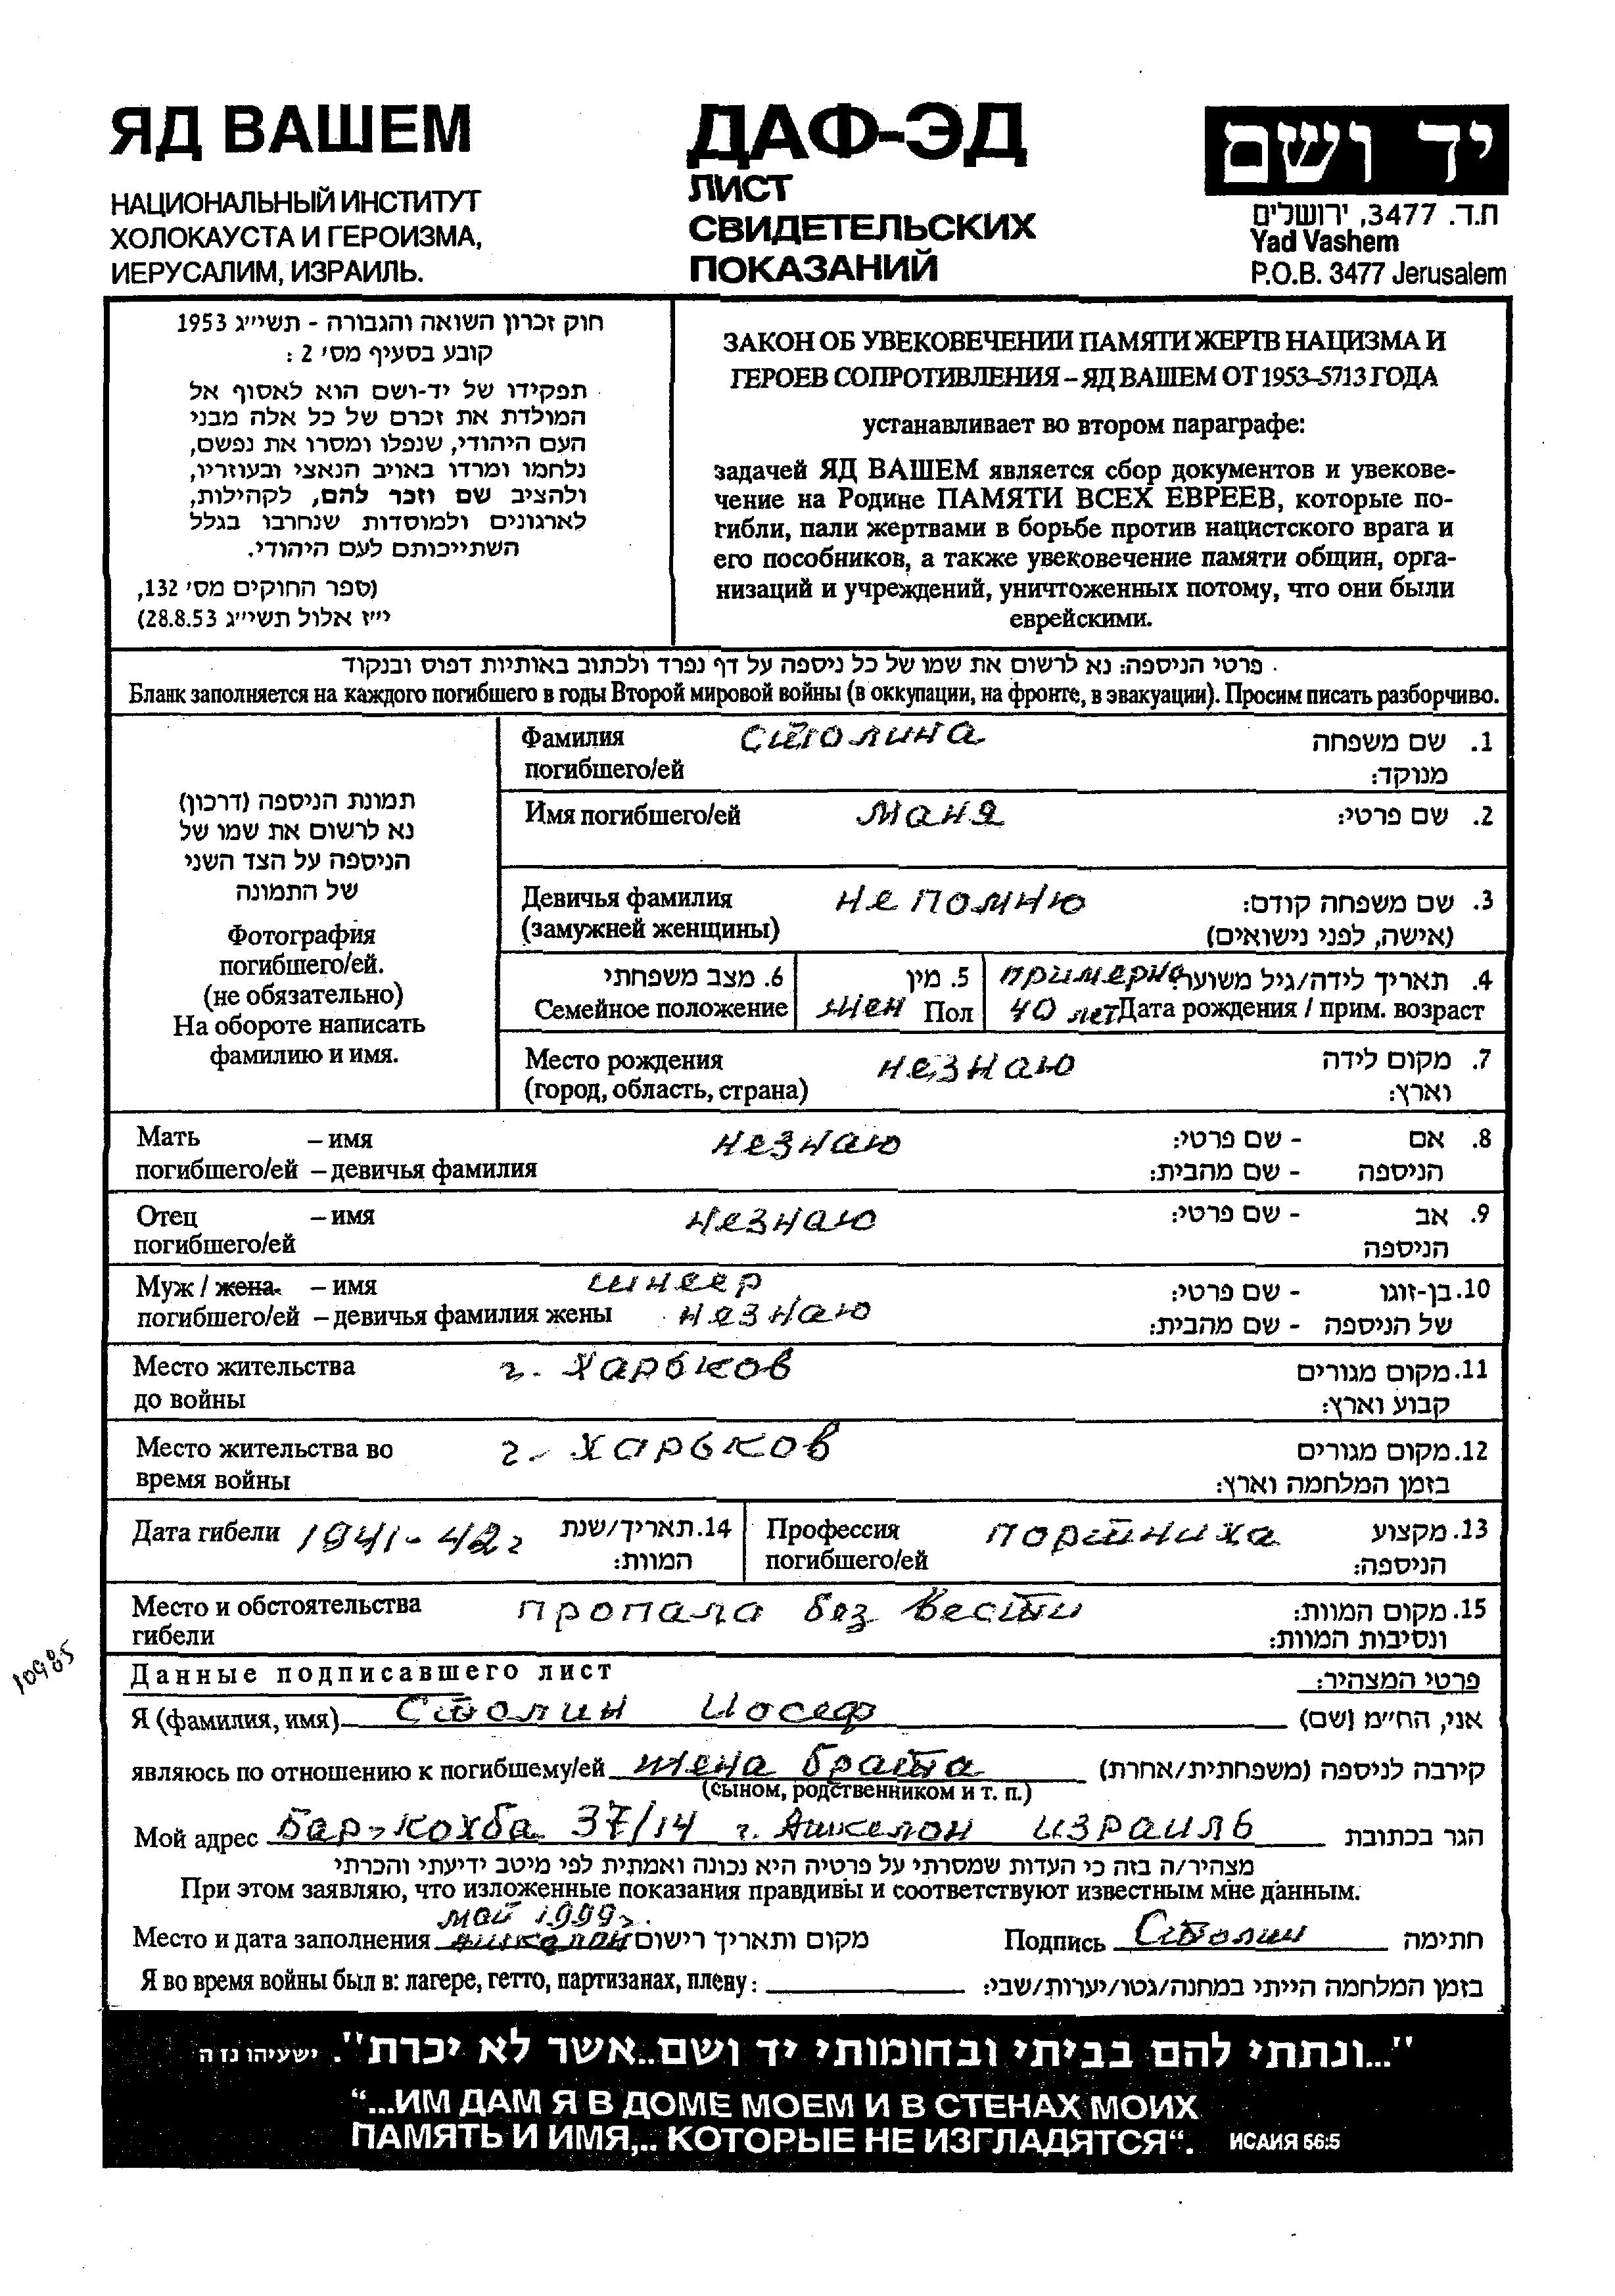 ЯД ВАШЕМ
НАЦИОНАЛЬНЫЙ ИНСТИТУТ
ХОЛОКАУСТА И ГЕРОИЗМА,
ИЕРУСАЛИМ, ИЗРАИЛЬ.
ДАФ-ЭД
ЛИСТ
СВИДЕТЕЛЬСКИХ
ПОКАЗАНИЙ
יד ושם
ת.ד. 3477, ירושלים
Yad Vashem
P.O.B. 3477 Jerusalem
חוק זכרון השואה והגבורה - תשי״ג 1953
קובע בסעיף מס׳ 2 :
תפקידו של יד-ושם הוא לאסוף אל
המולדת את זכרם של כל אלה מבני
העם היהודי, שנפלו ומסרו את נפשם,
נלחמו ומרדו באויב הנאצי ובעוזריו,
ולהציב שם וזכר להם, לקהילות,
לארגונים ולמוסדות שנחרבו בגלל
השתייכותם לעם היהודי.
(ספר החוקים מס׳ 132,
י״ז אלול תשי״ג 28.8.53)
ЗАКОН ОБ УВЕКОВЕЧЕНИИ ПАМЯТИ ЖЕРТВ НАЦИЗМА И
ГЕРОЕВ СОПРОТИВЛЕНИЯ – ЯД ВАШЕМ ОТ 1953–5713 ГОДА
устанавливает во втором параграфе:
задачей ЯД ВАШЕМ является сбор документов и увекове-
чение на Родине ПАМЯТИ ВСЕХ ЕВРЕЕВ, которые по-
гибли, пали жертвами в борьбе против нацистского врага и
его пособников, а также увековечение памяти общин, орга-
низаций и учреждений, уничтоженных потому, что они были
еврейскими.
פרטי הניספה: נא לרשום את שמו של כל ניספה על דף נפרד ולכתוב באותיות דפוס ובנקוד
Бланк заполняется на каждого погибшего в годы Второй мировой войны (в оккупации, на фронте, в эвакуации). Просим писать разборчиво.
תמונת הניספה (דרכון)
נא לרשום את שמו של
הניספה על הצד השני
של התמונה
Фотография
погибшего/ей.
(не обязательно)
На обороте написать
фамилию и имя.
Фамилия Столина 1. שם משפחה
погибшего/ей מנוקד:
Имя погибшего/ей Маня 2. שם פרטי:
Девичья фамилия не помню 3. שם משפחה קודם:
(замужней женщины) (אישה, לפני נישואים)
6. מצב משפחתי 5. מין примерно 4. תאריך לידה/גיל משוער
Семейное положение жен Пол 40 лет Дата рождения / прим. возраст
Место рождения незнаю 7. מקום לידה
(город, область, страна) וארץ:
Мать – имя незнаю 8. אם - שם פרטי:
погибшего/ей – девичья фамилия הניספה - שם מהבית:
Отец – имя незнаю 9. אב - שם פרטי:
погибшего/ей הניספה
Муж / жена – имя шнеер 10. בן-זוגו - שם פרטי:
погибшего/ей – девичья фамилия жены незнаю של הניספה - שם מהבית:
Место жительства г. Харьков 11. מקום מגורים
до войны קבוע וארץ:
Место жительства во г. Харьков 12. מקום מגורים
время войны בזמן המלחמה וארץ:
Дата гибели 1941-42г 14. תאריך/שנת המוות:
Профессия портниха 13. מקצוע
погибшего/ей הניספה:
Место и обстоятельства пропала без вести 15. מקום המוות:
гибели ונסיבות המוות:
10985
Данные подписавшего лист פרטי המצהיר:
Я (фамилия, имя) Столин Иосеф אני, הח״מ (שם)
являюсь по отношению к погибшему/ей жена брата קירבה לניספה (משפחתית/אחרת)
(сыном, родственником и т. п.)
Мой адрес Бар-Кохба 37/14 г. Ашкелон израиль הגר בכתובת
מצהיר/ה בזה כי העדות שמסרתי על פרטיה היא נכונה ואמתית לפי מיטב ידיעתי והכרתי
При этом заявляю, что изложенные показания правдивы и соответствуют известным мне данным.
май 1999г.
Место и дата заполнения ашкелон מקום ותאריך רישום Подпись Столин חתימה
Я во время войны был в: лагере, гетто, партизанах, плену: בזמן המלחמה הייתי במחנה/גטו/יערות/שבי:
"...ונתתי להם בביתי ובחומותי יד ושם..אשר לא יכרת". ישעיהו נז ה
“...ИМ ДАМ Я В ДОМЕ МОЕМ И В СТЕНАХ МОИХ
ПАМЯТЬ И ИМЯ,.. КОТОРЫЕ НЕ ИЗГЛАДЯТСЯ“. ИСАИЯ 56:5